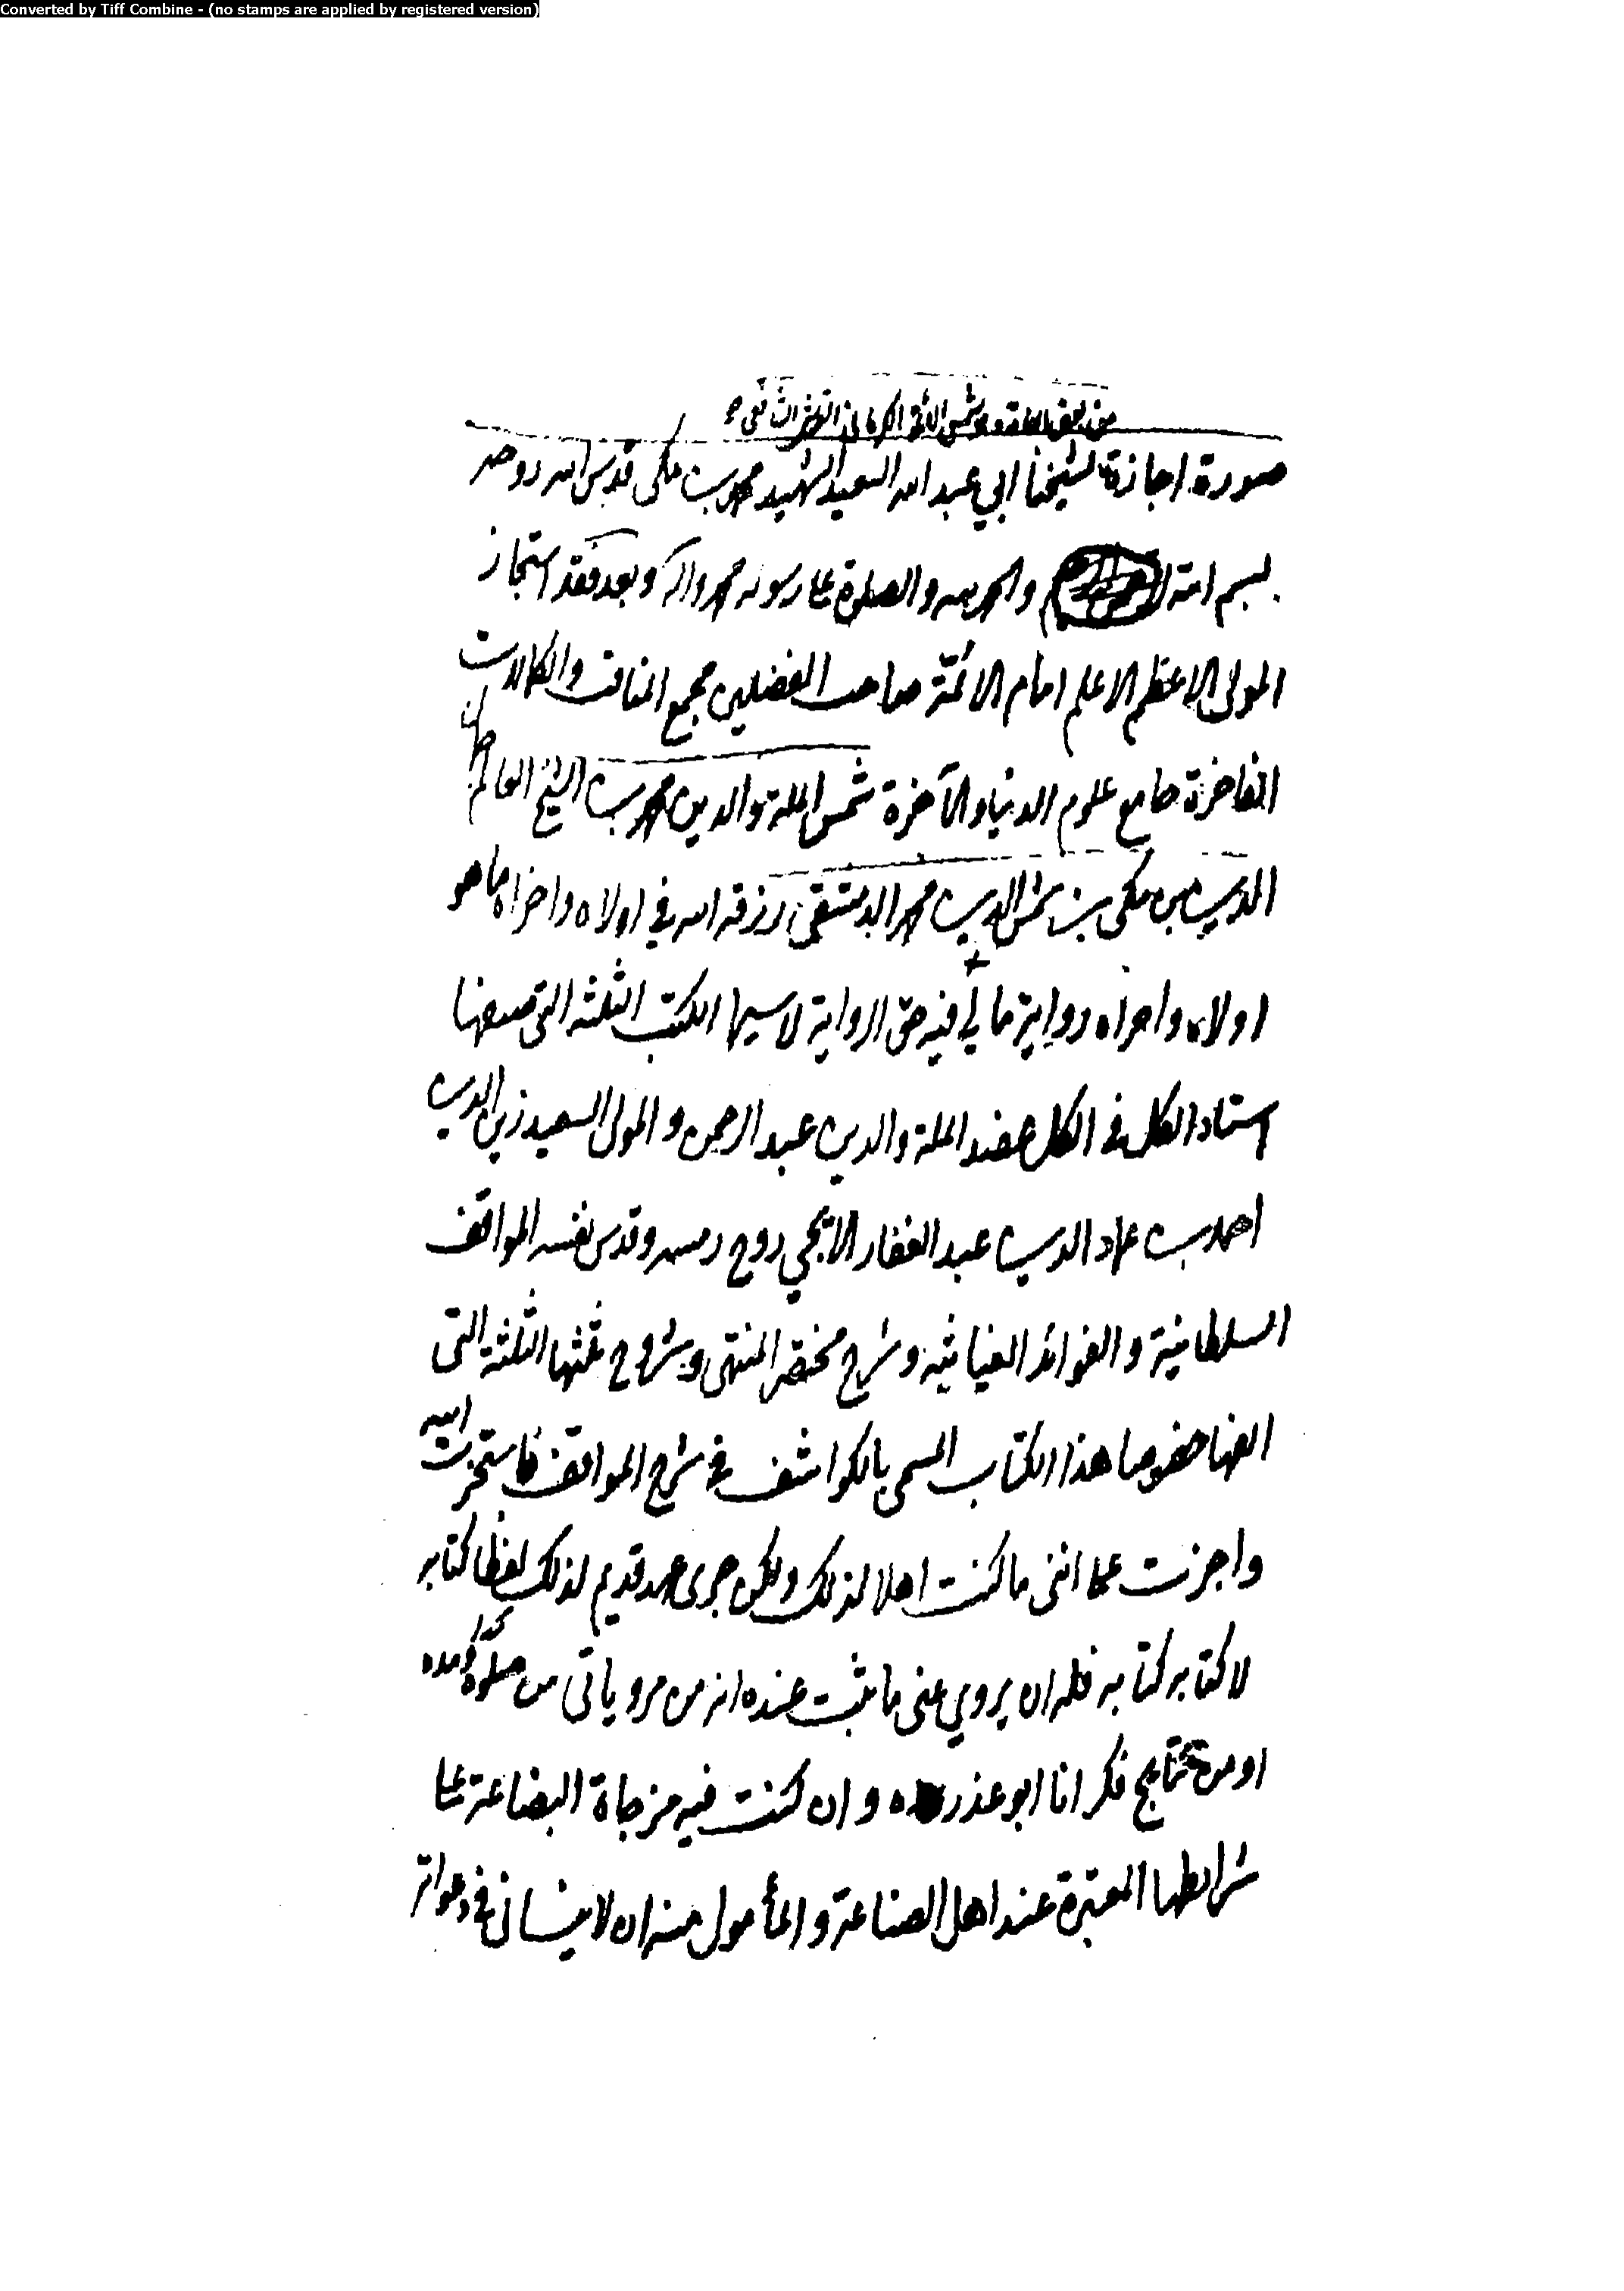 Converted by Tiff Combine - (no stamps are applied by registered version)
من بعض العامة وهو شمس الائمة الكرماني القرشي
صورة اجازة لشيخنا ابي عبد الله السعيد الشهيد محمد بن مكي قدس الله روحه
بسم الله والحمد لله والصلوة على رسوله محمد واله وبعد فقد استجاز
المولى الاعظم الاعلم امام الائمة صاحب الفضلين مجمع المناقب والكمالات
الفاخرة جامع علوم الدنيا والآخرة شمس الملة والدين محمد بن الشيخ العالم جمال
الدين بن مكي بن شمس الدين محمد الدمشقي رزقه الله في اولاه واخراه ما هو
اولاه واحراه رواية ما لي فيه حق الرواية لا سيما الكتب الثلثة التي صنفها
استاد الكل في الكل عضد الملة والدين عبد الرحمن و المولى السعيد زين الدين
احمد بن عماد الدين عبد الغفار الايجي روح رمسه وقدس نفسه المواقف
السلطانية و الفوائد الغياثية وشرح مختصر المنتهى وشروح ثلثتها الثلثة التي
الفها خصوصا هذا الكتاب المسمى بالكواشف في شرح المواقف فاستخرت الله
واجزت على انني ما كنت اهلا لذلك ولكن جرى عهد قديم لذلك لفظا كتابه
لا كتابه كتابه فله ان يروي عني ما يثبت عنده انه من مروياتي من صلوة
او من نتايج فكر انا ابو عذره وان كنت فيه مزجاة البضاعة على
شرايطها المعتبرة عند اهل الصناعة و المأمول منه ان لا ينساني في دعواته